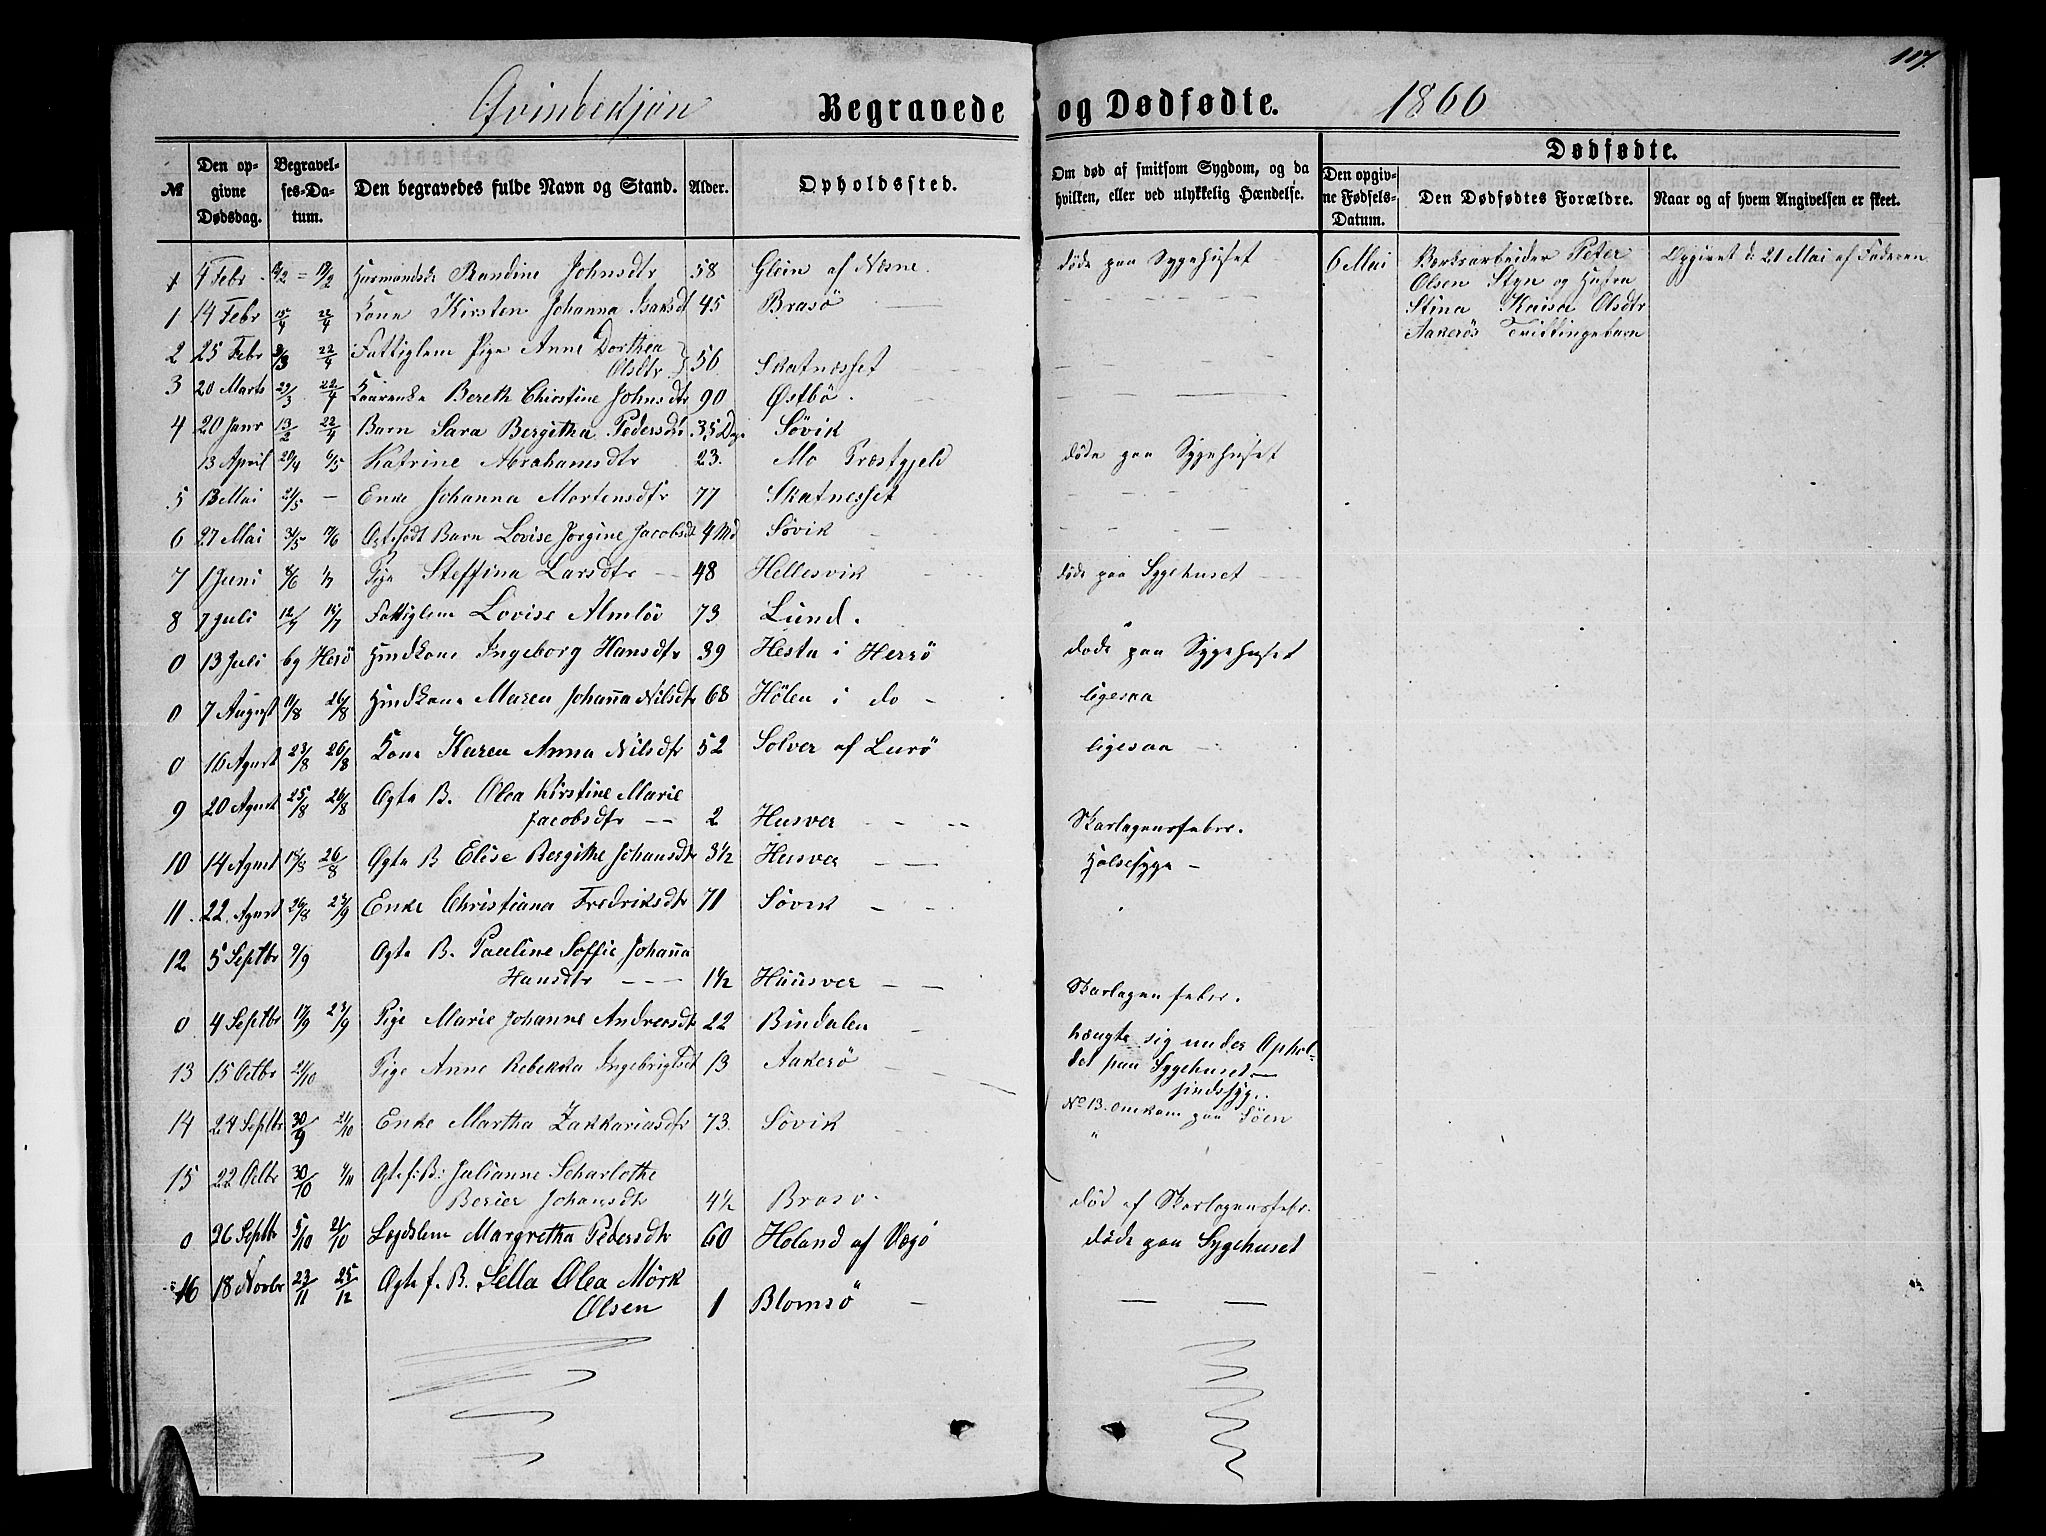 107.
Qvindekjön Begravede og Dødfødte. 1866
№ Den opgivne Dødsdag. Begravelses-Datum. Den begravedes fulde Navn og Stand. Alder. Opholdssted. Om død af smitsom Sygdom, og da hvilken, eller ved ulykkelig Hændelse. Dødfødte. Den opgivne Fødsels-Datum. Den Dødfødtes Forældre. Naar og af hvem Angivelsen er skeet.
4 Febr Randine Johnsdtr 58 Glein af Nesne. döde paa Sygehuset 6 Mai Peter Opgivet d: 21 Mai af Faderen
Olsen Styn og Hustru
1 14 Febr 15/4 22/4 Kone Kirsten Johanna Isaksdt 45 Brasö
Stina Kaisa Olsdtr
Aakerös Tvillingebarn
2 25 Febr 3/3 22/4 Fattiglem Pige Anne Dorthea
Olsdtr 56 Skatnesset
3 20 Marts 22/3 22/4 Bereth Chirstine Johnsdtr 90 Østbö.
4 20 Janr 13/2 22/4 Barn Sara Bergitha Pedersdt 35 Dage Sövik
13 April 20/4 6/5 Katrine Abrahamsdtr 23. Mo Præstgjeld döde paa Sygehuset
5 13 Mai 21/5 - Enke Johanna Mortensdtr 77 Skatnesset
6 27 Mai 31/5 Ægtefödt Barn Lovise Jorgine Jacobsdt 4 Md Sövik
7 1 Juni 8/6 1/7 Pige Steffina Larsdtr 48 Hellesvik döde paa Sygehuset
8 7 Juli 12/7 15/7 Fattiglem Lovise Almlöv 73 Lund.
0 13 Juli bg Herö Ingeborg Hansdtr 39 Hestu i Herrö döde paa Sygehuset
0 7 August 11/8 26/8 Maren Johanna Nilsdtr 68 Hölen i do - ligesaa
0 16 Agust 23/8 26/8 Kone Karen Anna Nilsdtr 52 Solver af Lurö ligesaa
9 20 Agust 25/8 26/8 Ægte B. Olea Kirstine Marie
Jacobsdtr 2 Husver Skarlagensfeber.
10 14 Agust 18/8 26/8 Ægte B Elise Bergithe Johansdtr 3½ Husver Halsesyge -
11. 22. Agust 26/8 23/9 Enke Christiana Fredriksdtr 71 Sövik
12 5 Septbr 9/9 Ægte B. Pauline Soffie Johanna
Hansdtr 1½ Huusver Skarlagensfeber.
0 4 Septbr 17/9 23/9 Pige Marie Johanne Andersdtr 22 Bindalen hængte sig under Ophol-
det paa Sygehuset
sindssyg.
13 15 Octbr 21/10 Pige Anne Rebekka Ingebrigtsdt 13 Aakerö
No 13. omkom paa Söen
14 24 Septbr 30/9 21/10 Enke Martha Zakkariasdtr 73. Sövik "
15 22 Octbr 30/10 4/11 Ægtef: B: Julianne Scharlothe
Berier Johansdtr 4½ Brasö. död af Skarlagensfebr.
0 26 Septbr 5/10 21/10 Lægdslem Margretha Pedersdtr 60 Holand af Vegö döde paa Sygehuset
16 18 Novbr 23/11 25/12 Ægte f. B. Sella Olea Mörk
Olsen 1 Blomsö